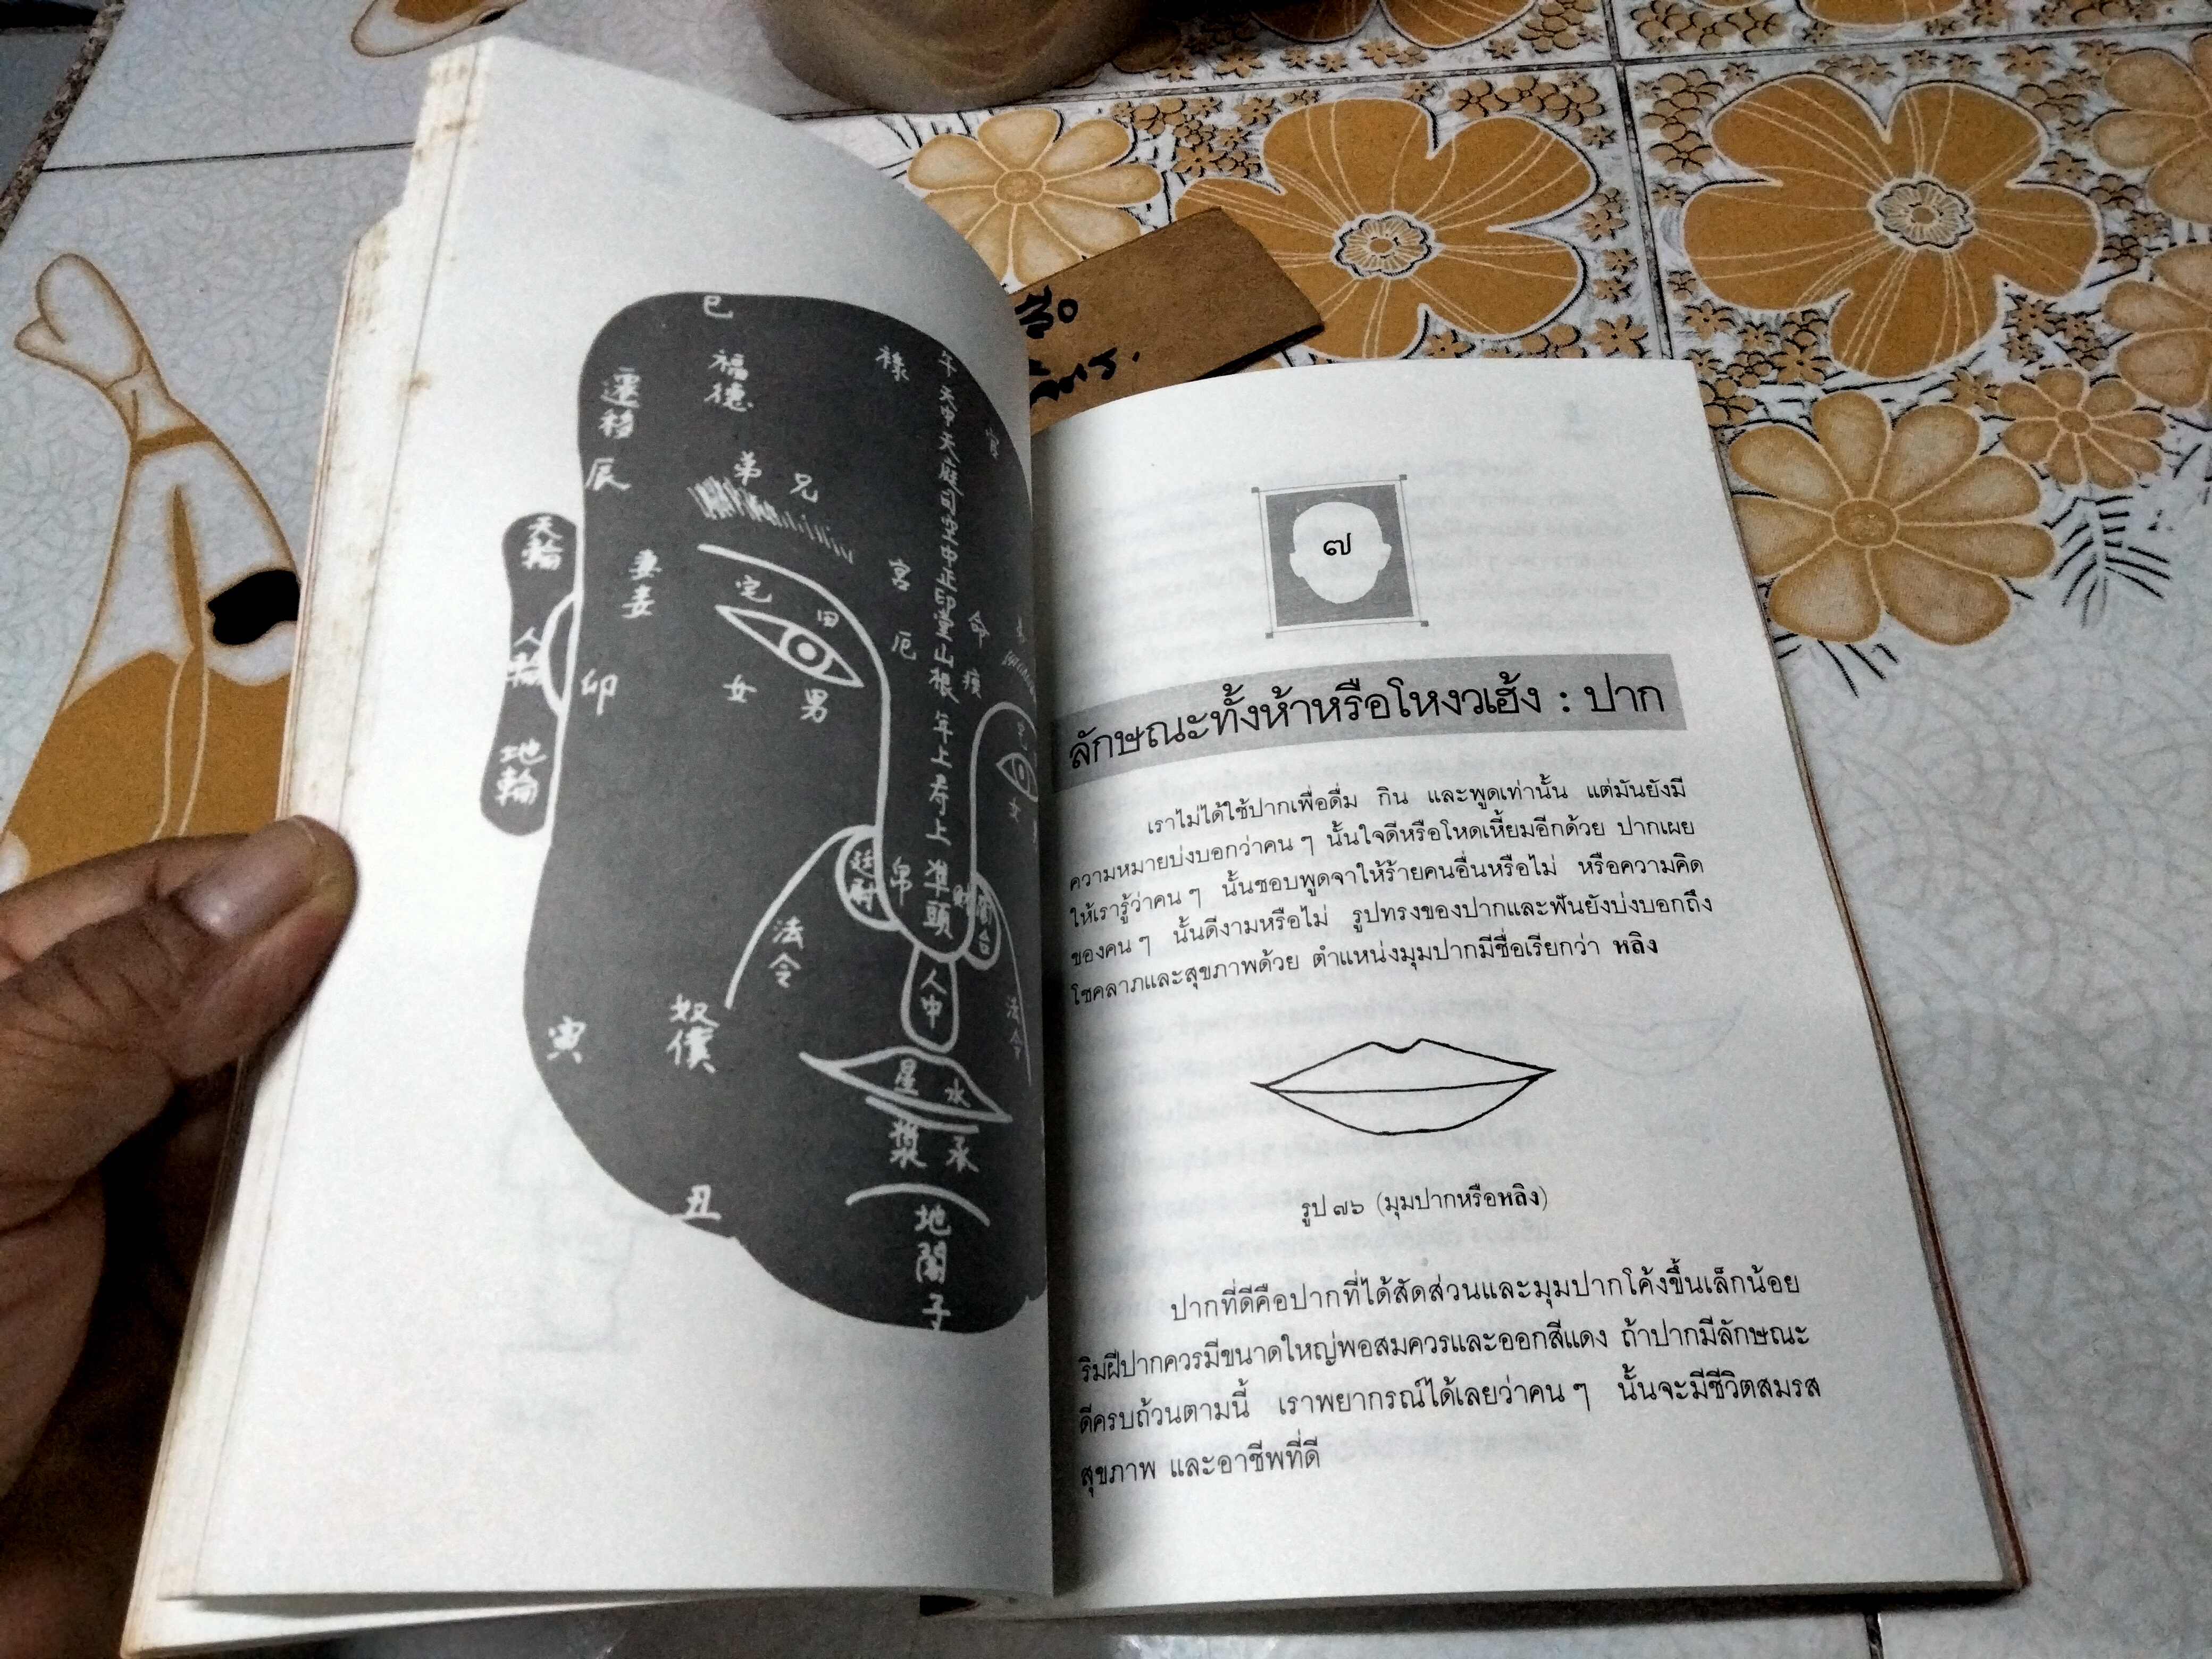 巳
福德
遷移
辰
弟 兄
祿
官
午 天中 天庭 司空 中正 印堂 山根 年上 寿上 准頭
天輪
人輪
地輪
妻妾
宅 田
宮
厄
命
女 男
卯
廷尉
帛
法令
人中
法令
寅
奴僕
星 水
漿 承
丑
地閣
子
๗
ลักษณะทั้งห้าหรือโหงวเฮ้ง : ปาก
เราไม่ได้ใช้ปากเพื่อดื่ม กิน และพูดเท่านั้น แต่มันยังมี
ความหมายบ่งบอกว่าคน ๆ นั้นใจดีหรือโหดเหี้ยมอีกด้วย ปากเผย
ให้เรารู้ว่าคน ๆ นั้นชอบพูดจาให้ร้ายคนอื่นหรือไม่ หรือความคิด
ของคน ๆ นั้นดีงามหรือไม่ รูปทรงของปากและฟันยังบ่งบอกถึง
โชคลาภและสุขภาพด้วย ตำแหน่งมุมปากมีชื่อเรียกว่า หลิง
รูป ๗๖ (มุมปากหรือหลิง)
ปากที่ดีคือปากที่ได้สัดส่วนและมุมปากโค้งขึ้นเล็กน้อย
ริมฝีปากควรมีขนาดใหญ่พอสมควรและออกสีแดง ถ้าปากมีลักษณะ
ดีครบถ้วนตามนี้ เราพยากรณ์ได้เลยว่าคน ๆ นั้นจะมีชีวิตสมรส
สุขภาพ และอาชีพที่ดี